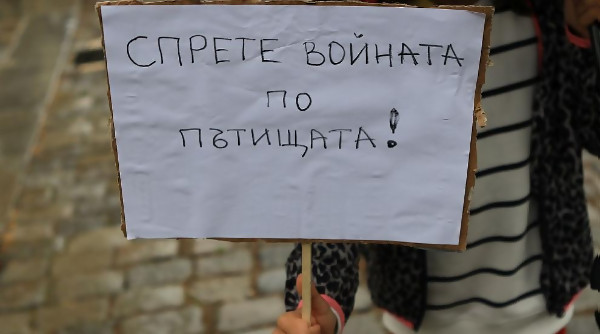 СПРЕТЕ ВОЙНАТА
ПО
ПЪТИЩАТА!